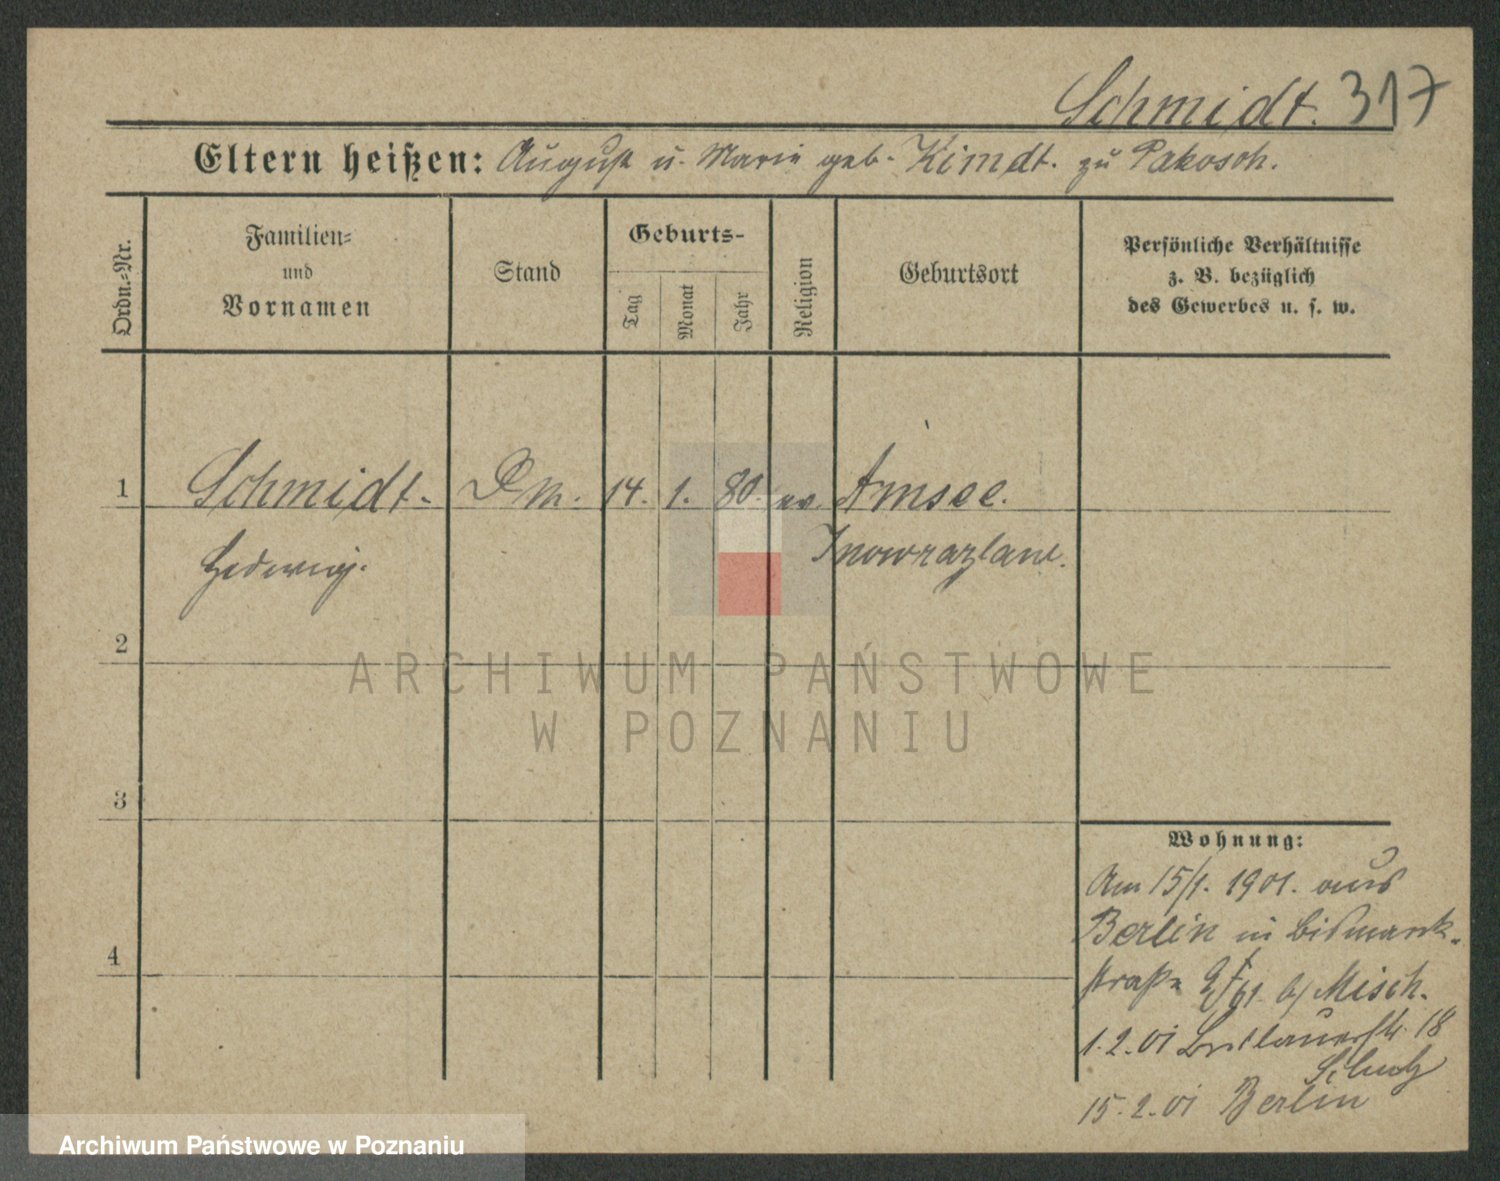 Schmidt. 317
Eltern heißen: August u. Marie geb. Kimdt. zu Pakosch.
Ordn.-Nr.
Familien-
und
Vornamen
Stand
Geburts-
Tag
Monat
Jahr
Religion
Geburtsort
Persönliche Verhältnisse
z. B. bezüglich
des Gewerbes u. s. w.
1 Schmidt. 14. 1. 80. ev. Amsee.
Hedwig. Inowrazlaw.
2
3
4
Wohnung:
Am 15/1. 1901. aus
Berlin in Bismarck-
straße b/ Misch.
1.2.01 Breslauerstr. 18
Schulz
15.2.01 Berlin
ARCHIWUM PAŃSTWOWE
W POZNANIU
Archiwum Państwowe w Poznaniu